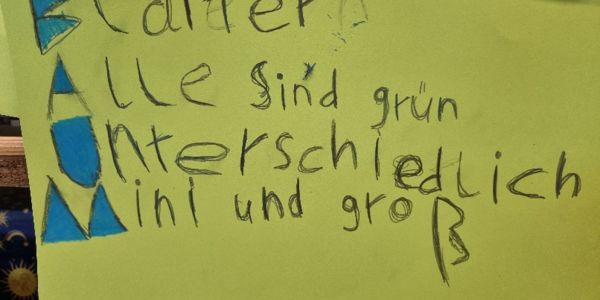 Blätter
Alle sind grün
Unterschiedlich
Mini und groß